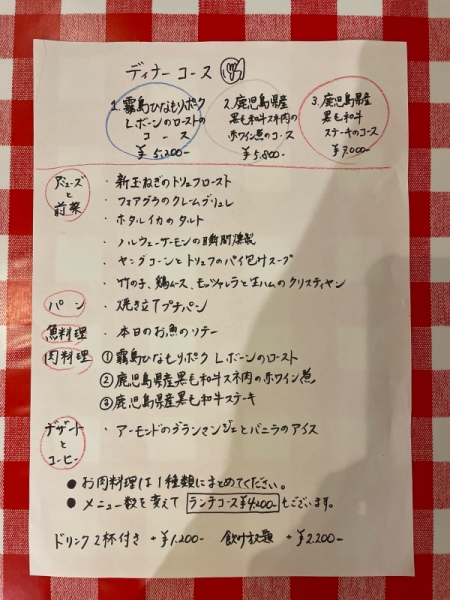 ディナーコース
1. 霧島ひなもりポーク
Lボーンのローストの
コース
¥5,200-
2. 鹿児島県産
黒毛和牛スネ肉の
赤ワイン煮のコース
¥5,800-
3. 鹿児島県産
黒毛和牛
ステーキのコース
¥7,000-
アミューズ
と
前菜
・新玉ねぎのトリュフロースト
・フォアグラのクレームブリュレ
・ホタルイカのタルト
・ノルウェーサーモンの瞬間燻製
・ヤングコーンとトリュフのパイ包みスープ
・竹の子、鶏ムース、モッツァレラと生ハムのクリスティヤン
パン
・焼き立てプチパン
魚料理
・本日のお魚のソテー
肉料理
①霧島ひなもりポーク Lボーンのロースト
②鹿児島県産黒毛和牛スネ肉の赤ワイン煮
③鹿児島県産黒毛和牛ステーキ
デザート
と
コーヒー
・アーモンドのブランマンジェとバニラのアイス
●お肉料理は1種類にまとめてください。
●メニュー数を変えて ランチコース¥4,200- もございます。
ドリンク2杯付き +¥1,200- 飲み放題 +¥2,200-